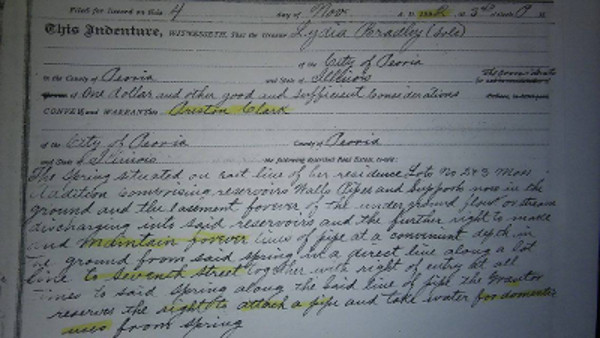 Filed for Record on this 4 day of Nov A. D. 3 o'clock P M
This Indenture, WITNESSETH, That the Grantor Lydia Bradley (sole)
of the City of Peoria
in the County of Peoria and State of Illinois
of One dollar and other good and sufficient Considerations
CONVEY and WARRANT to Preston Clark
of the City of Peoria County of Peoria
and State of Illinois the following described Real Estate, to-wit:
The Spring situated on east line of her residence Lots No 2 & 3 Moss
Addition Comprising reservoirs Walls Pipes and Supports now in the
ground and the Easement forever of the under ground flow or stream
discharging into said reservoirs and the further right to made
and Maintain forever lines of pipe at a convenient depth in
the ground from said spring in a direct line along a lot
line to Seventh Street together with right of entry at all
times to said spring along the said line of pipe the Grantor
reserves the right to attach a pipe and take water for domestic
uses from spring